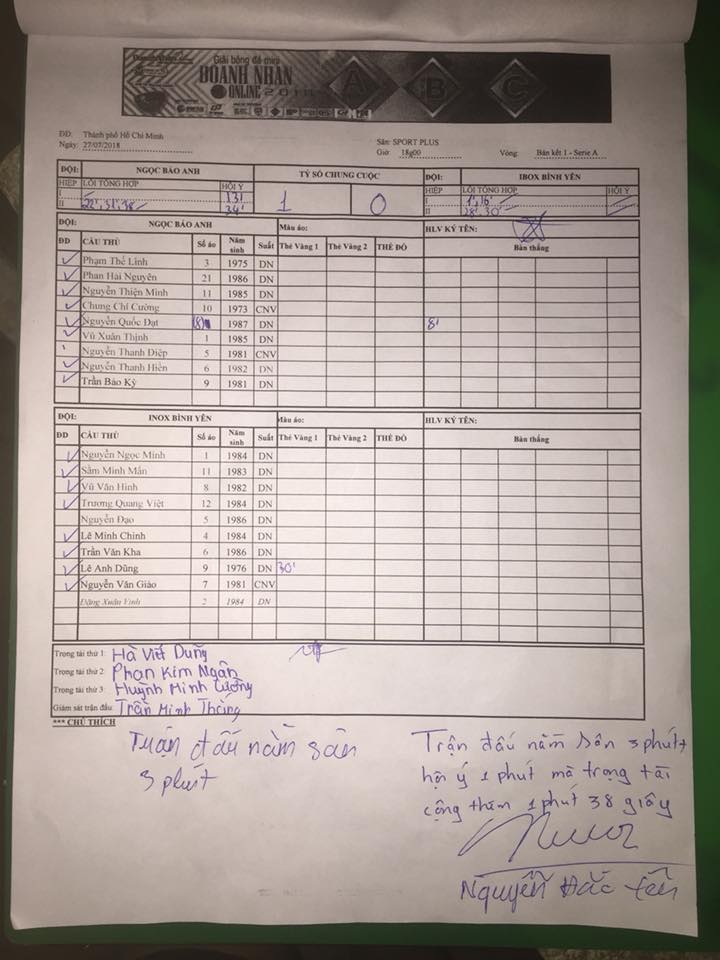 Giải bóng đá mini
DOANH NHÂN
ONLINE 2018
A B C
DD: Thành phố Hồ Chí Minh
Ngày: 27/07/2018
Sân: SPORT PLUS
Giờ: 18g00
Vòng: Bán kết 1 - Serie A
ĐỘI: NGỌC BẢO ANH TỶ SỐ CHUNG CUỘC ĐỘI: IBOX BÌNH YÊN
HIỆP LỖI TỔNG HỢP HỘI Ý 1 0 HIỆP LỖI TỔNG HỢP HỘI Ý
I 13' I 1', 16'
II 22', 31', 38' 34' II 28' 30'
ĐỘI: NGỌC BẢO ANH Màu áo: HLV KÝ TÊN:
ĐD CẦU THỦ Số áo Năm sinh Suất Thẻ Vàng 1 Thẻ Vàng 2 THẺ ĐỎ Bàn thắng
Phạm Thế Linh 3 1975 DN
Phan Hải Nguyên 21 1986 DN
Nguyễn Thiện Minh 11 1985 DN
Chung Chí Cường 10 1973 CNV
Nguyễn Quốc Đạt (8) 1987 DN 8'
Vũ Xuân Thịnh 1 1985 DN
Nguyễn Thanh Diệp 5 1981 CNV
Nguyễn Thanh Hiền 6 1982 DN
Trần Bảo Kỳ 9 1981 DN
ĐỘI: INOX BÌNH YÊN Màu áo: HLV KÝ TÊN:
ĐD CẦU THỦ Số áo Năm sinh Suất Thẻ Vàng 1 Thẻ Vàng 2 THẺ ĐỎ Bàn thắng
Nguyễn Ngọc Minh 1 1984 DN
Sầm Minh Mẫn 11 1983 DN
Vũ Văn Hinh 8 1982 DN
Trương Quang Việt 12 1984 DN
Nguyễn Đạo 5 1986 DN
Lê Minh Chinh 4 1984 DN
Trần Văn Kha 6 1986 DN
Lê Anh Dũng 9 1976 DN 30'
Nguyễn Văn Giáo 7 1981 CNV
Đặng Xuân Vinh 2 1984 DN
Trọng tài thứ 1: Hà Viết Dũng
Trọng tài thứ 2: Phan Kim Ngân
Trọng tài thứ 3: Huỳnh Minh Cường
Giám sát trận đấu: Trần Minh Thắng
*** CHÚ THÍCH
Trận đấu nằm sân
3 phút
Trận đấu nằm sân 3 phút +
hội ý 1 phút mà trọng tài
cộng thêm 1 phút 38 giây
Nguyễn Đắc